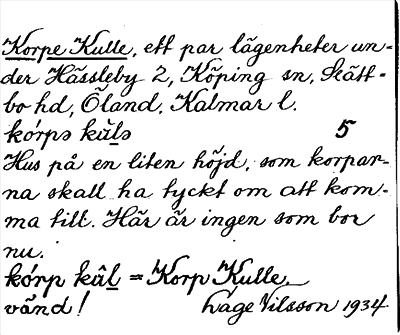 Korpe Kulle, ett par lägenheter un-
der Hässleby 2, Köping sn, Slätt-
bo hd, Öland, Kalmar l.
kórpə kŭlə 5
Hus på en liten höjd, som korpar-
na skall ha tyckt om att kom-
ma till. Här är ingen som bor
nu.
kórp kâl = Korp Kulle.
vänd! Låge Nilsson 1934